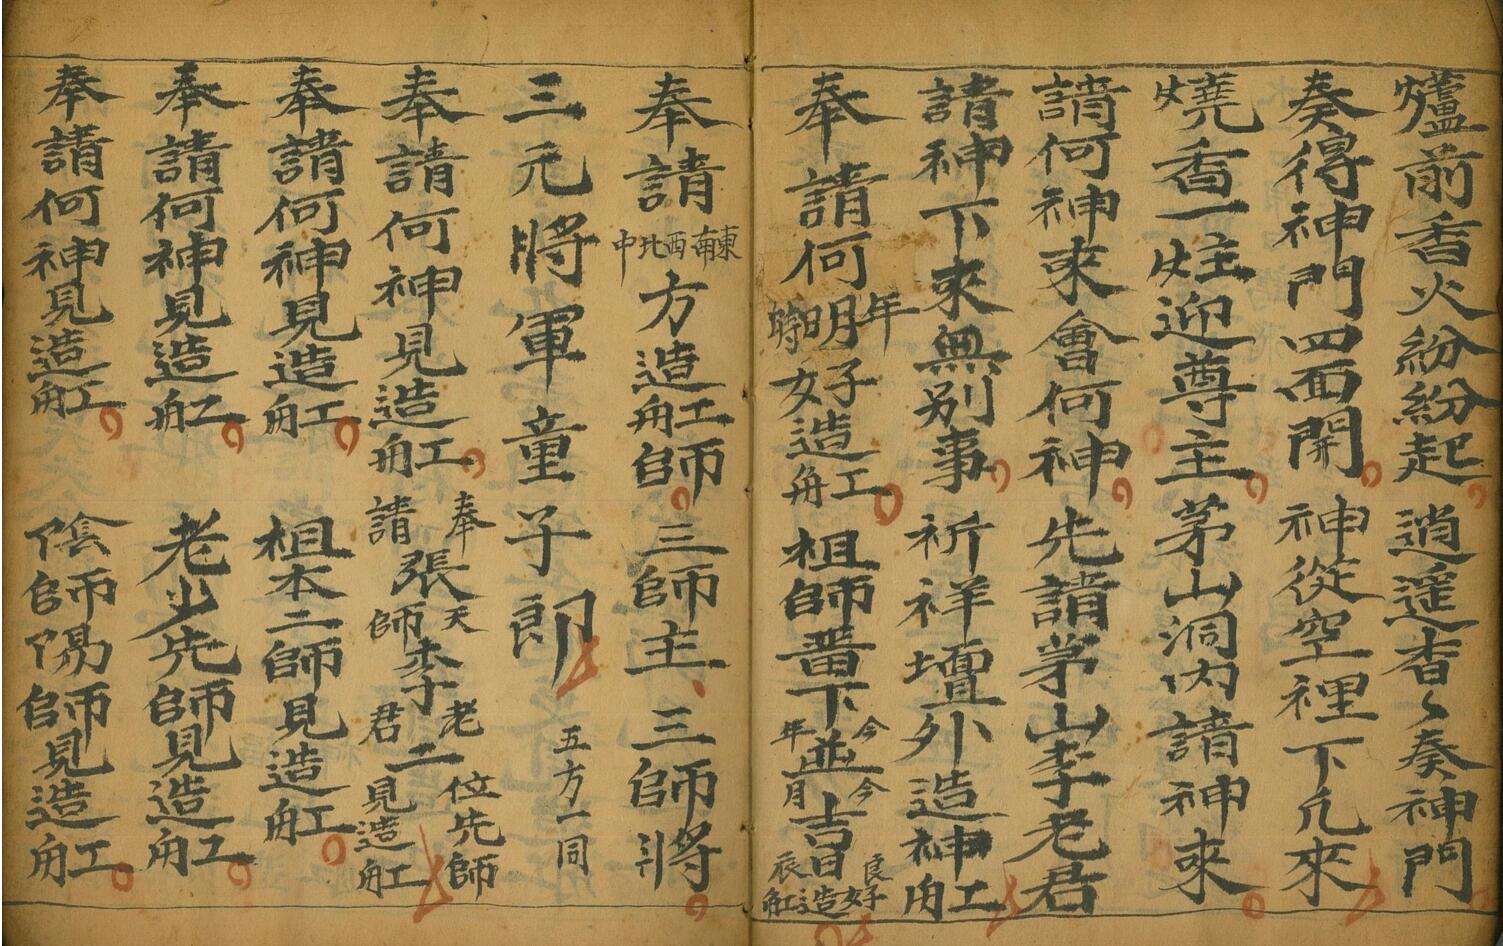 爐前香火紛紛起 逍遥杳々奏神門
奏得神門四面開 神從空裡下凡來
燒香一炷迎尊主 茅山洞内請神來
請何神來會何神 先請茅山李老君
請神下來無別事 祈祥壇外造神舡
奉請何年明時好造舡 祖師番下並今年今月吉日良辰好造舡
奉請東南西北中方造舡師 三師主 三師將
三元將軍童子郎 五方一同
奉請何神見造舡 奉請張天師李老君二位先師見造舡
奉請何神見造舡 祖本二師見造舡
奉請何神見造舡 老少先師見造舡
奉請何神見造舡 陰師陽師見造舡